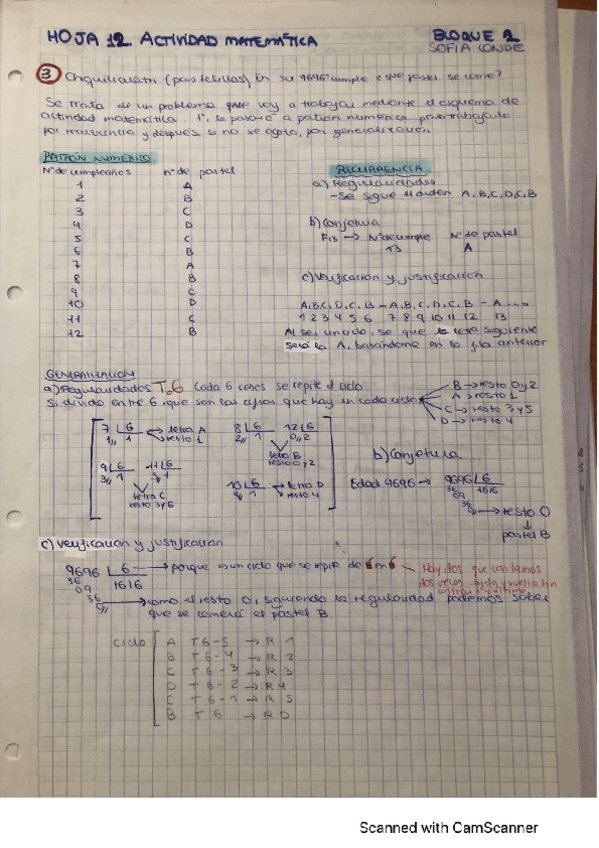 HOJA 12. ACTIVIDAD MATEMÁTICA
BLOQUE 2
SOFÍA CONDE
3 Chiquilicuatri (pastelillos) en su 9696º cumple ¿que pastel se come?
Se trata de un problema que voy a trabajar mediante el esquema de
actividad matemática. 1º, lo pasaré a patrón numérico para trabajarlo
por recurrencia y después, si no se agota, por generalización
PATRÓN NUMÉRICO
Nº de cumpleaños nº de pastel
1 A
2 B
3 C
4 D
5 C
6 B
7 A
8 B
9 C
10 D
11 C
12 B
RECURRENCIA
a) Regularidades
- Se sigue el orden A, B, C, D, C, B
b) Conjetura
F13 → Nº de cumple Nº de pastel
13 A
c) Verificación y justificación
A, B, C, D, C, B - A, B, C, D, C, B - A ....
1 2 3 4 5 6 7 8 9 10 11 12 13
Al ser un ciclo, se que la letra siguiente
será la A, basándome en la fila anterior
GENERALIZACIÓN
a) Regularidades T6 Cada 6 se repite el ciclo
Si divido entre 6, que son las cifras que hay en cada ciclo
B → resto 0 y 2
A → resto 1
C → resto 3 y 5
D → resto 4
7 6 letra A
1 1 resto 1
8 6 12 6
2 1 0 2
letra B
resto 0 y 2
9 6 11 6
3 1 5 1
letra C
resto 3 y 5
10 6 letra D
4 1 resto 4
b) Conjetura
Edad 9696 → 9696 6
36 1616
09
36
0 → resto 0
pastel B
c) Verificación y justificación
9696 6 → porque es un ciclo que se repite de 6 en 6
36 1616
09
36
0 → como el resto 0, siguiendo la regularidad podemos saber
que se comerá el pastel B.
Hay dos que contamos
dos veces ida y vuelta sin
contar 1º y último
ciclo
A T6-5 → R 1
B T6-4 → R 2
C T6-3 → R 3
D T6-2 → R 4
C T6-1 → R 5
B T6 → R 0
Scanned with CamScanner